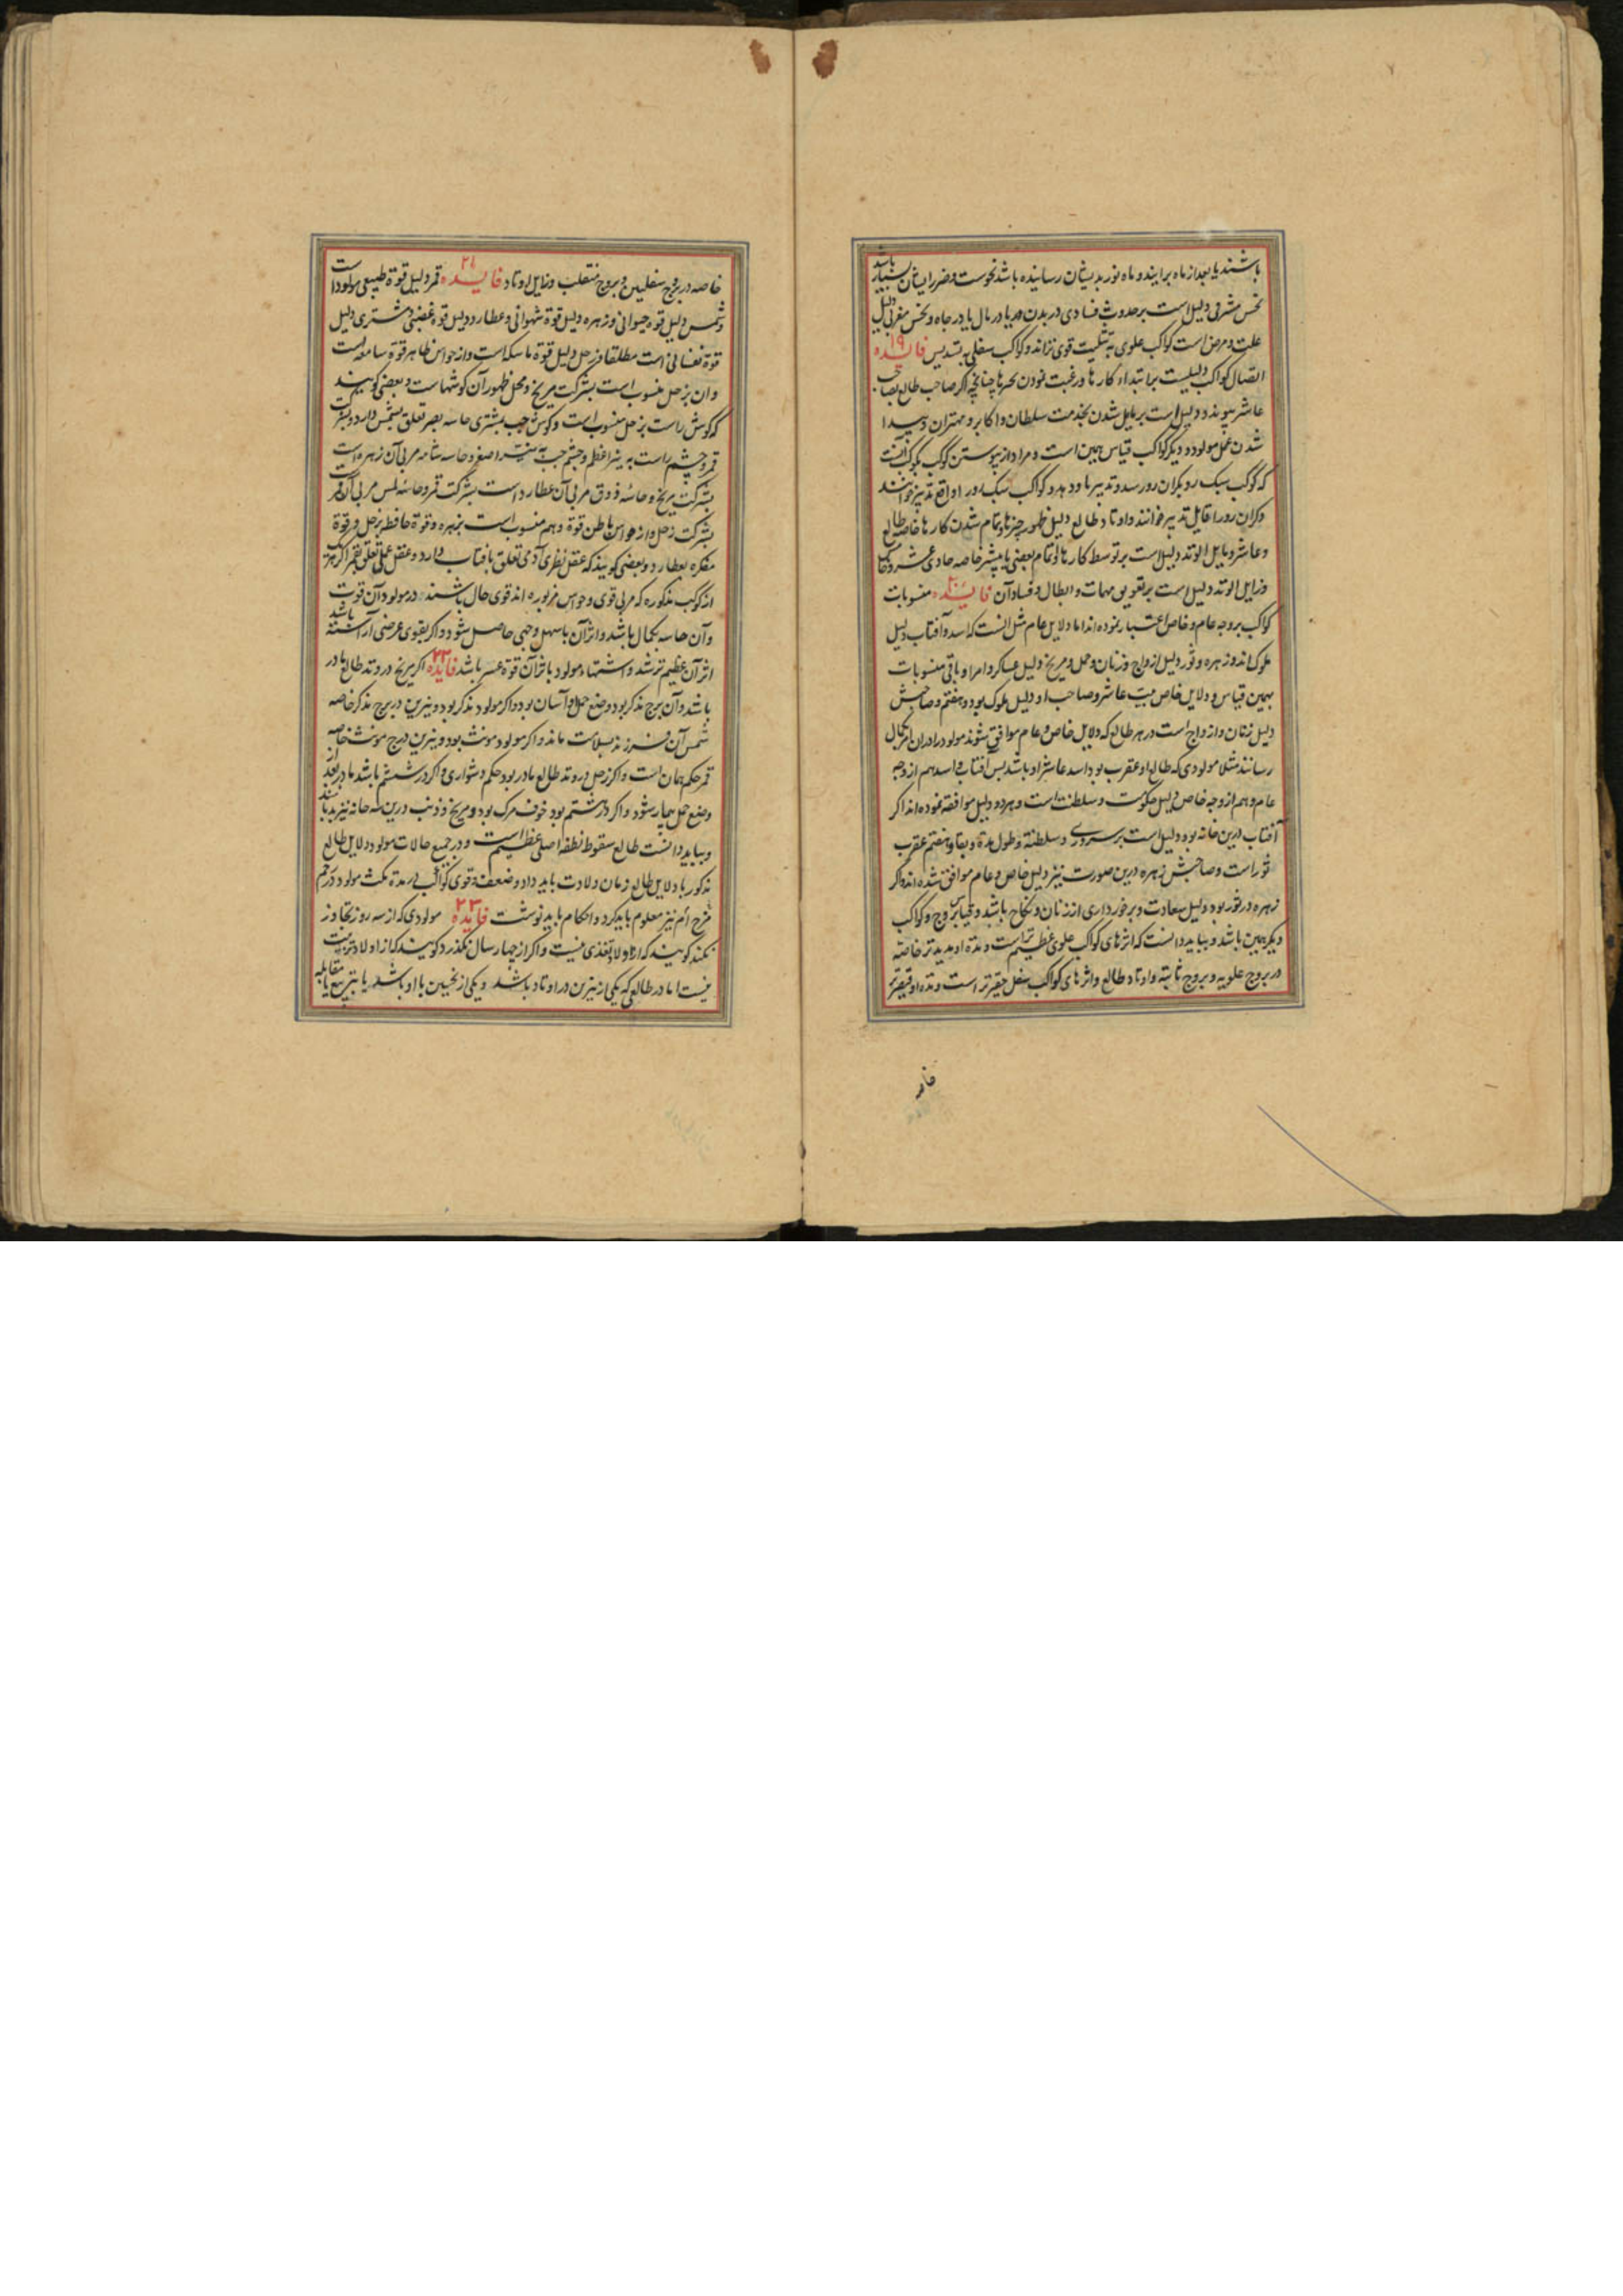 باشند یا بعد از ماه برایند و ماه نور بدیشان رسانیده باشد نحوست و ضرر ایشان بسیار باشد
نحس مشرقی دلیل است بر حدوث فسادی در بدن و یا در مال یا در جاه و نحس مغربی دلیل
علت و مرض است کواکب علوی به تثلیث قوی تراند و کواکب سفلی به تسدیس فایده ۱۹
اتصال کواکب دلیلیست بر ابتداء کارها و رغبت نمودن بحرها چنانچه اگر صاحب طالع بصاحب
عاشر پیوندد دلیل است بر مایل شدن بخدمت سلطان و اکابر و مهتران و پیدا
شدن عمل مولود و دیگر کواکب قیاس همین است و مراد از پیوستن کوکب بکوکب آنست
که کوکب سبک رو بکران رو رسد و تدبیر باو دهد و کواکب سبک رو را واقع تدبیر خوانند
و کران رو را قابل تدبیر خوانند و اوتاد طالع دلیل ظهور چیزها و تمام شدن کارها خاصه طالع
و عاشر و مایل الوتد دلیل است بر توسط کارها و تمام بعضی یا بیشتر خاصه حادی عشر و خامس
و زایل الوتد دلیل است بر تعویق مهمات و ابطال و فساد آن فایده ۲۰ منسوبات
کواکب بر وجه عام و خاص اعتبار نموده اند اما دلایل عام مثل آنست که اسد و آفتاب دلیل
ملوک اند و زهره و ثور دلیل ازواج و زنان و حمل و مریخ دلیل عساکر و امرا و باقی منسوبات
بهمین قیاس و دلایل خاص بیت عاشر و صاحب او دلیل ملوک بود و هفتم و صاحبش
دلیل زنان و ازواج است در هر طالع که دلایل خاص و عام موافق شوند مولود را در ان امر بکمال
رسانند مثلا مولودی که طالع او عقرب بود اسد عاشر او باشد پس آفتاب و اسد هم از وجه
عام و هم از وجه خاص دلیل حکومت و سلطنت است و هر دو دلیل موافقه نموده اند اگر
آفتاب درین خانه بود دلیل است بر سروری و سلطنة و طول مدة و بقا و هفتم عقرب
ثور است و صاحبش زهره درین صورت نیز دلیل خاص و عام موافق شده اند و اگر
زهره در ثور بود دلیل سعادت و برخورداری از زنان و نکاح باشد و قیاس بروج و کواکب
دیگر همین باشد و بباید دانست که اثرهای کواکب علوی عظیم تر است و مدة او مدیدتر خاصه
در بروج علویه و بروج ثابته و اوتاد طالع و اثرهای کواکب سفلی حقیرتر است و مدة او قصیرتر
خاصه
خاصه در بروج سفلیین و بروج منقلب و زایل اوتاد فایده ۲۱ قمر دلیل قوة طبیعی مولود است
و شمس دلیل قوة حیوانی و زهره دلیل قوة شهوانی و عطارد دلیل قوة غضبی و مشتری دلیل
قوة نفسانی است مطلقا و زحل دلیل قوة ماسکه است و از حواس ظاهر قوة سامعه است
و ان بزحل منسوب است بشرکت مریخ و محل ظهور آن کوشهاست و بعضی کویند
که کوش راست بزحل منسوب است و کوش چپ بمشتری حاسه بصر تعلق بشمس دارد و بشرکت
قمر و چشم راست به نیر اعظم و چشم چپ به نیر اصغر و حاسه شامه مربی آن زهره است
بشرکت مریخ و حاسه ذوق مربی آن عطارد است بشرکت قمر و حاسه لمس مربی آن قمر است
بشرکت زحل و از حواس باطن قوة وهم منسوب است بزهره و قوة حافظه بزحل و قوة
مفکره بعطارد و بعضی کویند که عقل نظری آدمی تعلق بافتاب دارد و عقل عملی تعلق بقمر اکر هریک
از کوکب مذکوره که مربی قوی و حواس مزبوره اند قوی حال باشند در مولود آن قوت
و آن حاسه بکمال باشد و اثر آن باسهل وجهی حاصل شود و اکر بقوی عرضی آراسته باشد
اثر آن عظیم تر شد و اشتهاء مولود باثر آن قوة عسر باشد فایده ۲۲ اکر مریخ در وتد طالع مادر
باشد و آن برج مذکر بود وضع حمل و آسان بود و اکر مولود مذکر بود و نیرین در برج مذکر خاصه
شمس آن فرزند بسلامت ماند و اکر مولود مونث بود و نیرین در برج مونث خاصه
قمر حکم همان است و اکر زحل در وتد طالع مادر بود حکم دشواری و اکر در ششم باشد مادر بعد از
وضع حمل بیمار شود و اکر در هشتم بود خوف مرک بود و مریخ و ذنب درین سه خانه نیز بد باشند
و بباید دانست طالع سقوط نطفه اصلی عظیم است و در جمیع حالات مولود دلایل طالع
مذکور با دلایل طالع زمان ولادت باید داد و ضعف و قوی کواکب در مدة مکث مولود در رحم
مزج ام نیز معلوم باید کرد و احکام باید نوشت فایده ۲۳ مولودی که از سه روز تجاوز
نکند کویند که او را ولا تغذی نیست و اکر از چهار سال نکذرد کویند که از اولاد تربیت
نیست اما در طالعی که یکی از نیرین در اوتاد باشد و یکی از نحسین با او باشد یا بتربیع یا مقابله